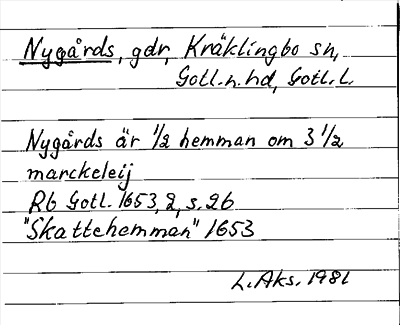 Nygårds, gdr, Kräklingbo sn,
Gotl. n. hd, Gotl. l.
Nygårds är 1/2 hemman om 3 1/2
marckeleij
Rb Gotl. 1653, 2, s. 26
"Skattehemman" 1653
L. Aks. 1981